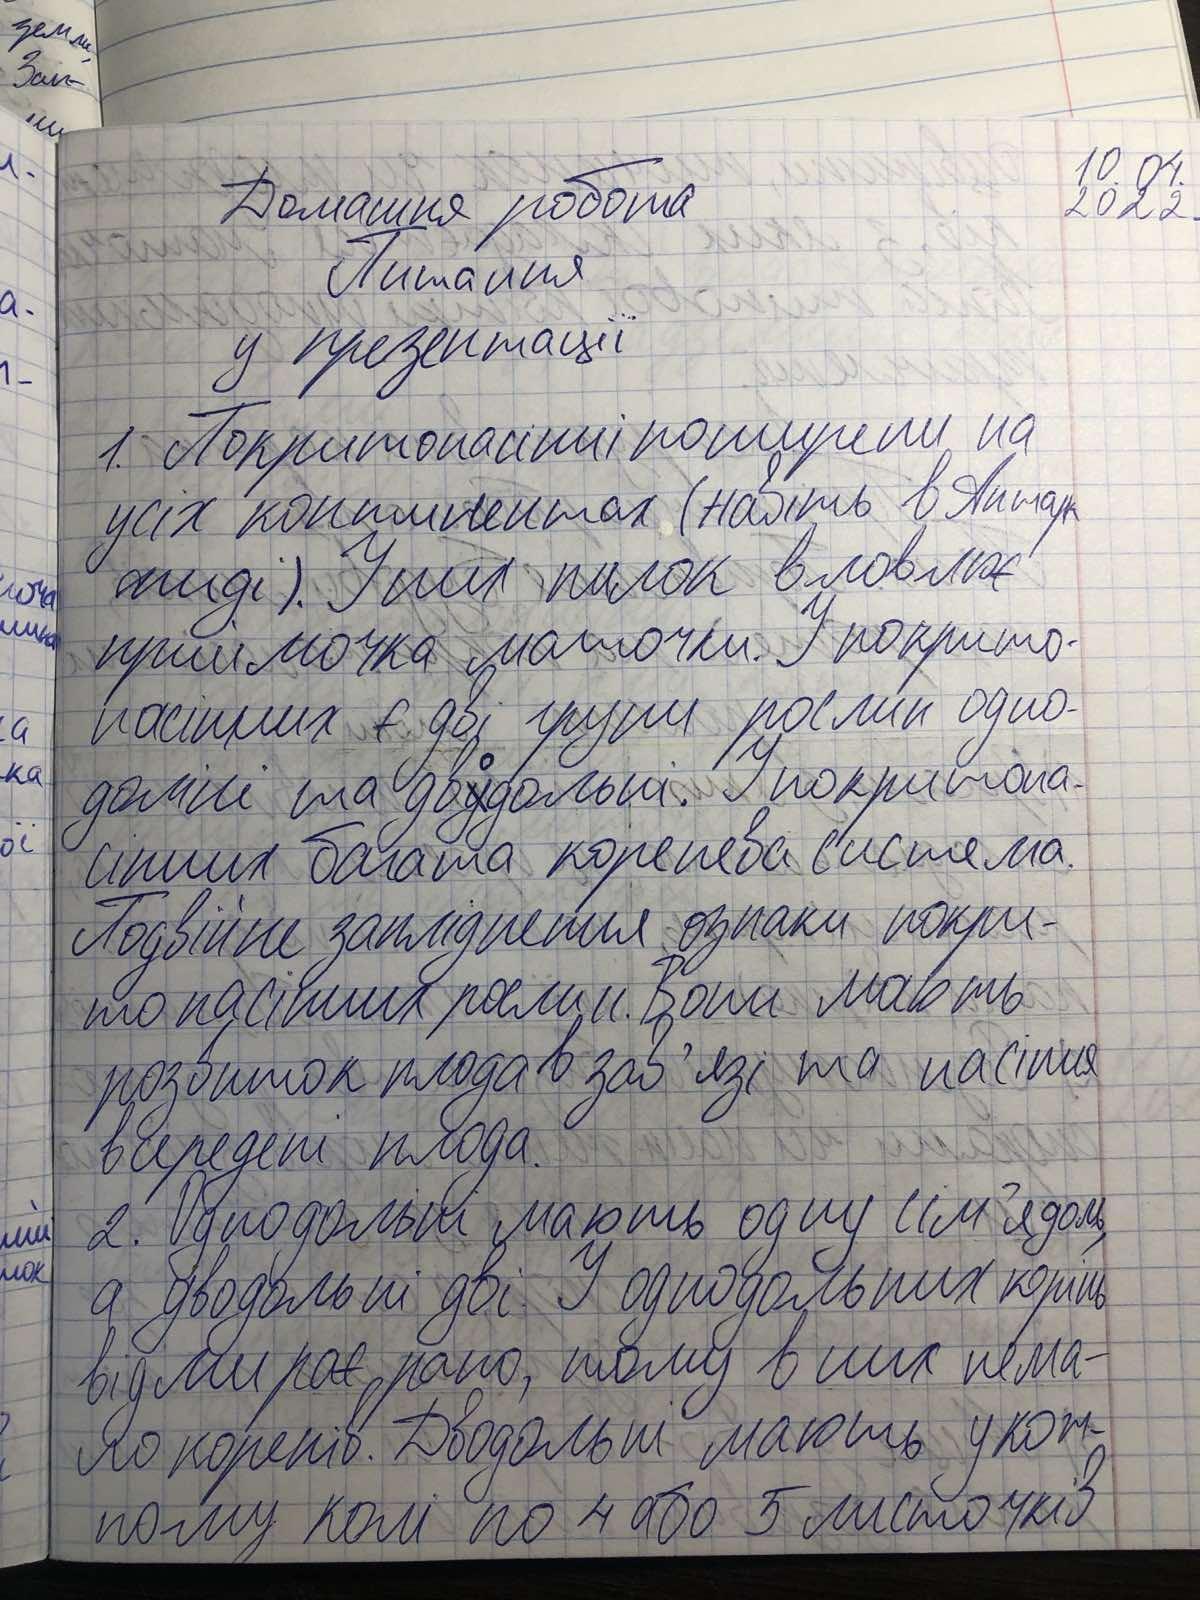 земли,
Зам-
10.04.
2022.
Домашня робота
Питання
у презентації
1. Покритонасінні поширени на
усіх континентах (навіть в Антарк
тиді). У них пилок вловлює
приймочка маточки. У покрито-
насінних є дві групи рослин одно-
домні та дводольні. У покритона-
сінних багата коренева система.
Подвійне запліднення ознаки покри-
тонасінних рослин. Вони мають
розвиток плода в зав'язі та насіння
всередені плода.
2. Однодольні мають одну сім'ядоль,
а дводольні дві. У однодольних корінь
відмирає рано, тому в них нема-
ло коренів. Дводольні мають у кож-
ному колі по 4 або 5 листочків